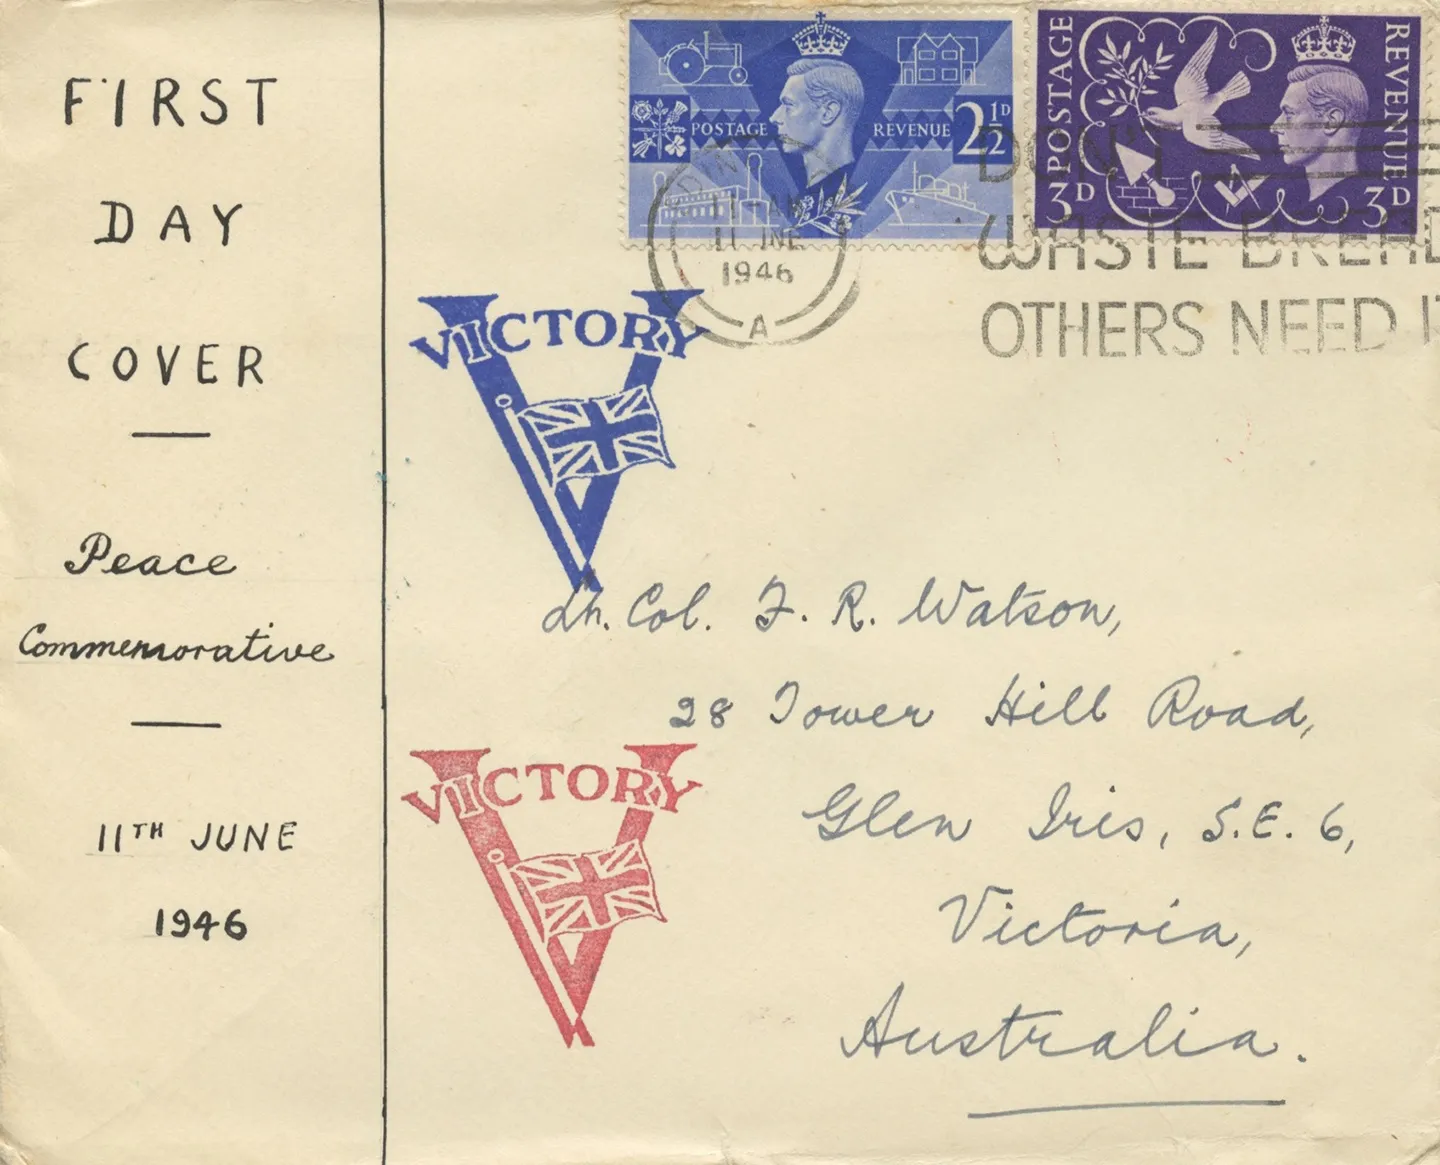 FIRST
DAY
COVER
Peace
Commemorative
11TH JUNE
1946
POSTAGE REVENUE 2½D
POSTAGE REVENUE
3D 3D
11-AM
11 JNE
1946
A
DON'T
WASTE BREAD
OTHERS NEED IT
VICTORY
Lt. Col. F. R. Watson,
28 Tower Hill Road,
Glen Iris, S.E. 6,
Victoria,
Australia.
VICTORY